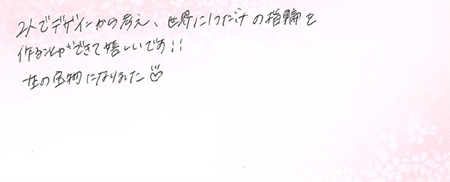 2人でデザインから考え、世界に1つだけの指輪を
作ることができて嬉しいです!!
一生の宝物になりました♡